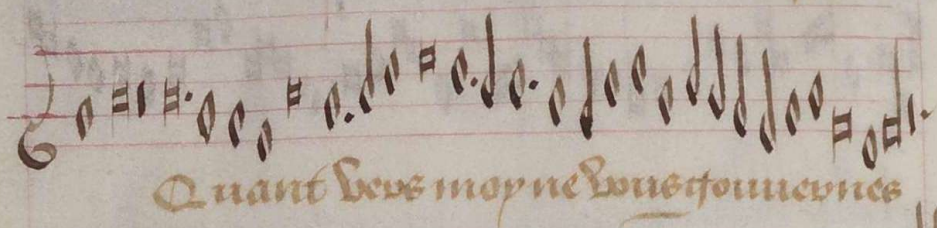 Quant vers moy ne vous tournes